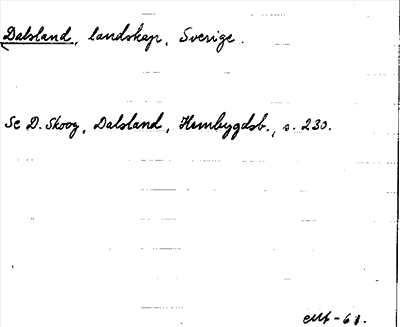 Dalsland, landskap, Sverige.
Se D. Skoog, Dalsland, Hembygdsb., s. 230.